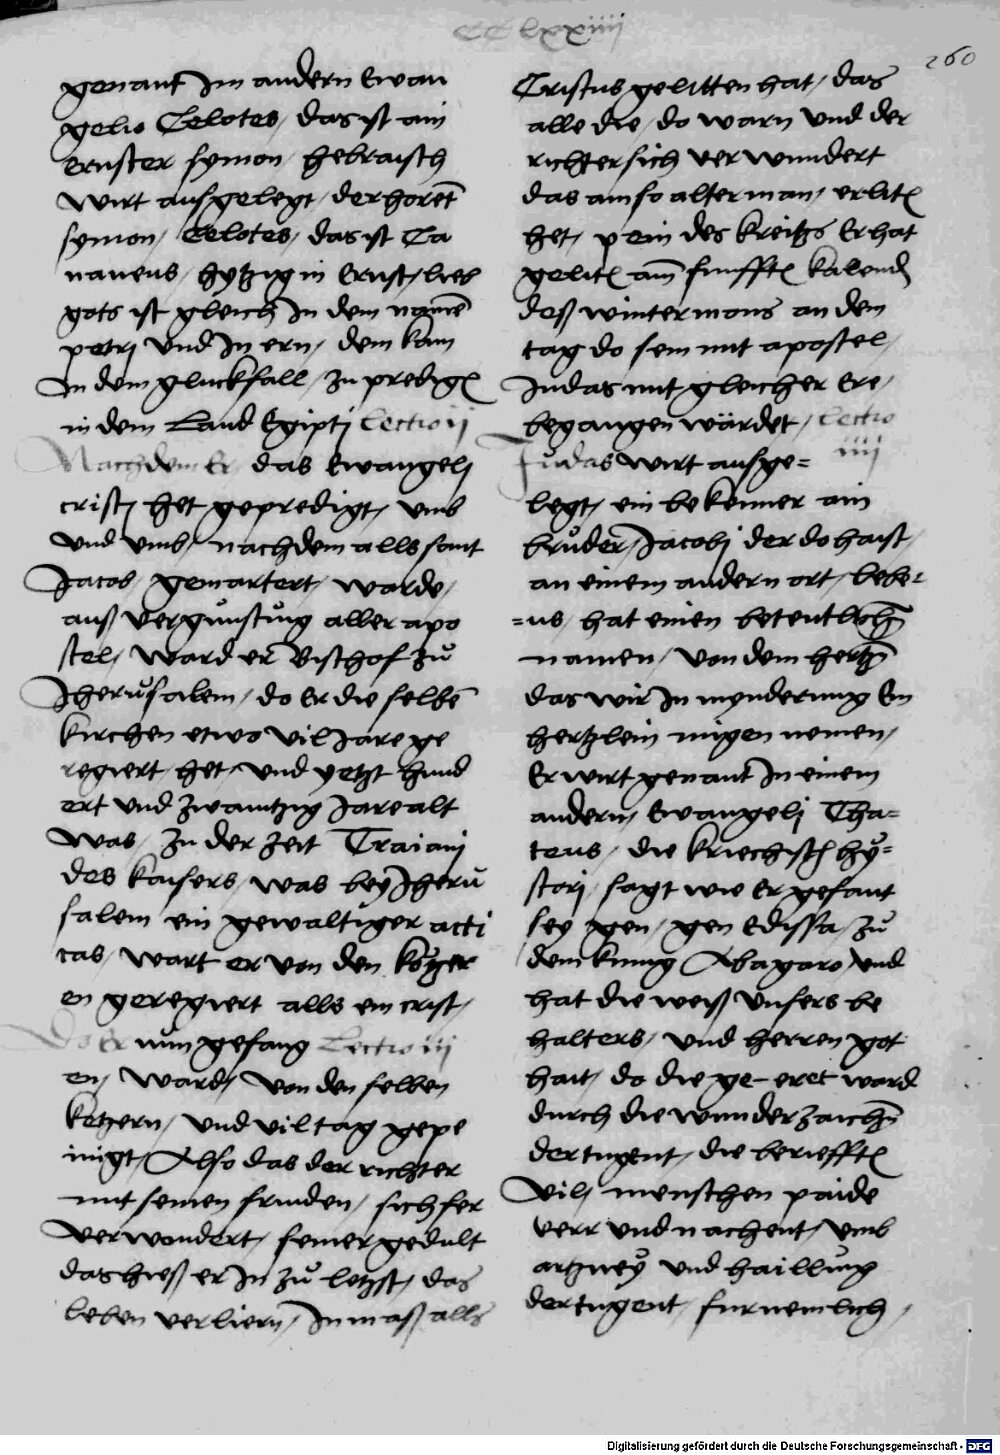 CC lxxiiii
260
genant Im andern Ewan
gelio Celotes / das ist ain
ernster symon / hebraisch
wirt ausgelegt / der horet̄
symon / Celotes / das ist Ca
naneus / hytzig in Ernst / lieb
gots ist gleich In dem namē
petrj Vnd In ern / dem kam
In dem gluckfall / zu predigē
in dem Land Egiptj Lectio ij
Nachdem Er das Ewangelj
cristj het gepredigt / vmb
vnd vmb / nachdem alls sant
Jacob / gemartert / warde /
auß vergůnstůng aller apo
stel / ward er Bischof zů
Jherůsalem / do Er die selbē
kirchen etwo vil Jare ge
regiert / het / vnd yetzt hund
ert vnd zwaintzig Jare alt
was / In der zeit Traianj
des kaisers / was bey Jherů
salem ein gewaltiger atti
cas / wart er von den ketzer
en geregiert alls ein crist /
Do Er nun gefang Lectio iij
en / ward / von den selben
ketzern / vnd vil tag gepe
inigt / Also das der richter
mit seinen frinden / sich ser
verwondert / seiner gedult
das hieß er In zů letzst / das
leben verliern / In maß alls
Cristus gelitten hat / das
alle die / do warn vnd der
richter sich verwundert
das ain so alter man / erlitē
het / pein des kreitzs Er hat
gelitē am funfftē kalend
deß wintermons an dem
tag do sein mit apostel /
Judas mit gleicher Ere /
begangen wärdet / Lectio
iiij
Judas wirt ausge=
legt / ein bekenner ain
bruder / Jacobj der do haist /
an einem andern ort / lebe=
=us / hat einen betentlichē
namen / von dem hertzē
das wir In mynderung Ein
hertzlein migen nemen /
Er wirt genant In einem
andern / Ewangelj Tha=
teus / die kriechisch hy=
storj / sagt wie Er gesant
sey gen / gen Edissa / zů
dem kunig Abagaro / vnd
hat die weiß vnsers be
halters / vnd herren got
hait / do die ge- eret ward
durch die wunderzaichē
der tugent / die beriefftē
vil / menschen paide
verr vnd nachent / vmb
artzney vnd haillung
der tugent / furnemlich /
Digitalisierung gefördert durch die Deutsche Forschungsgemeinschaft - DFG